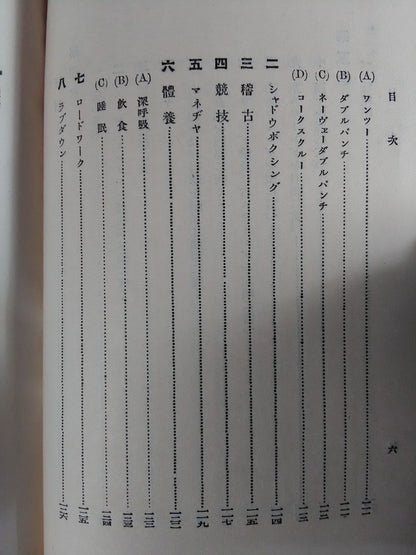 目次
(A) ワンツー
(B) ダブルパンチ
(C) ネーヴェーダブルパンチ……一一三
(D) コークスクルー……一一三
二 シャドウボクシング……一一四
三 稽古……一一五
四 競技……一一七
五 マネヂヤ……一一九
六 體養
(A) 深呼吸
(B) 飲食
(C) 睡眠……一二四
七 ロードワーク……一二五
八 ラブダウン……一二六
六